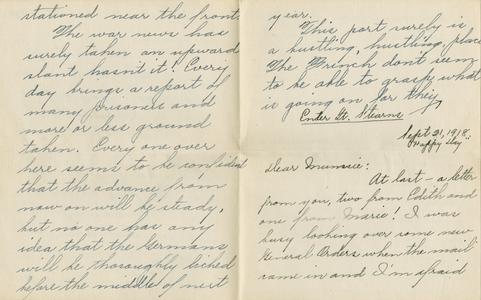 stationed near the front.
The war news has
surely taken an upward
slant hasn't it? Every
day brings a report of
many prisoners and
more or less ground
taken. Every one over
here seems to be confident
that the advance from
now on will be steady,
but no one has any
idea that the Germans
will be thoroughly licked
before the middle of next
year.
This port surely is
a bustling, hustling, place
The French don't seem
to be able to grasp what
is going on for they
Enter Lt. Stearns
Sept 21, 1918.
Happy Day!!
Dear Mumsie:
At last - a letter
from you, two from Edith and
one from Marie! I was
busy looking over some new
General Orders when the mail
came in and I'm afraid